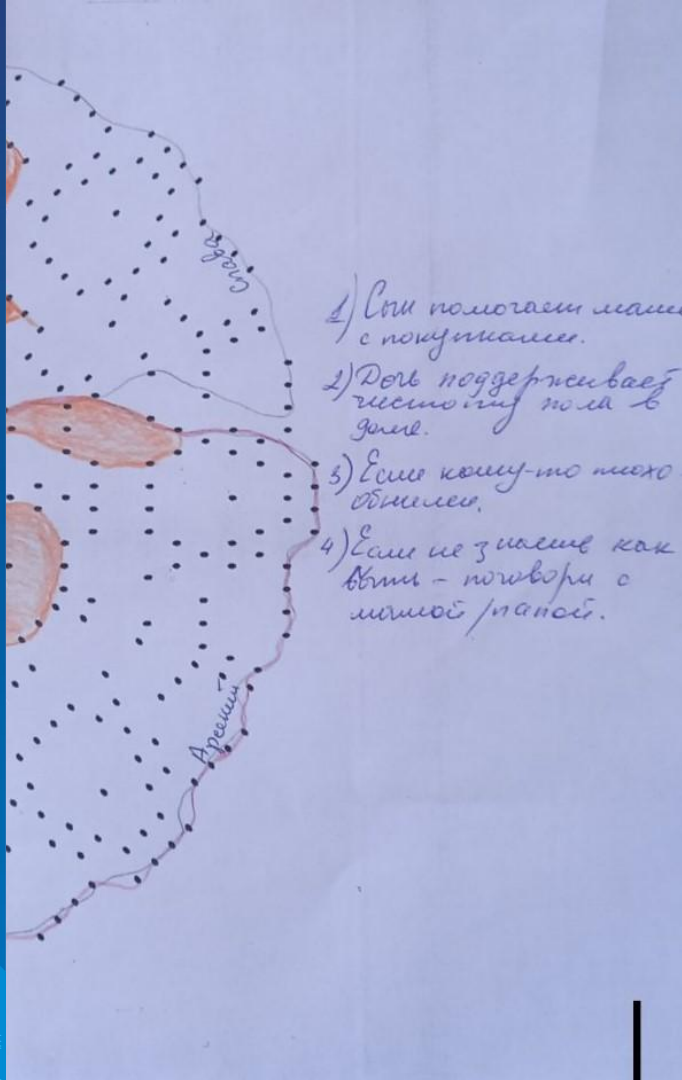 Слава
1) Сын помогает маме
с покупками.
2) Дочь поддерживает
чистоту пола в
доме.
3) Если кому-то плохо
обнимем.
4) Если не знаешь как
быть - поговори с
мамой/папой.
Арсений